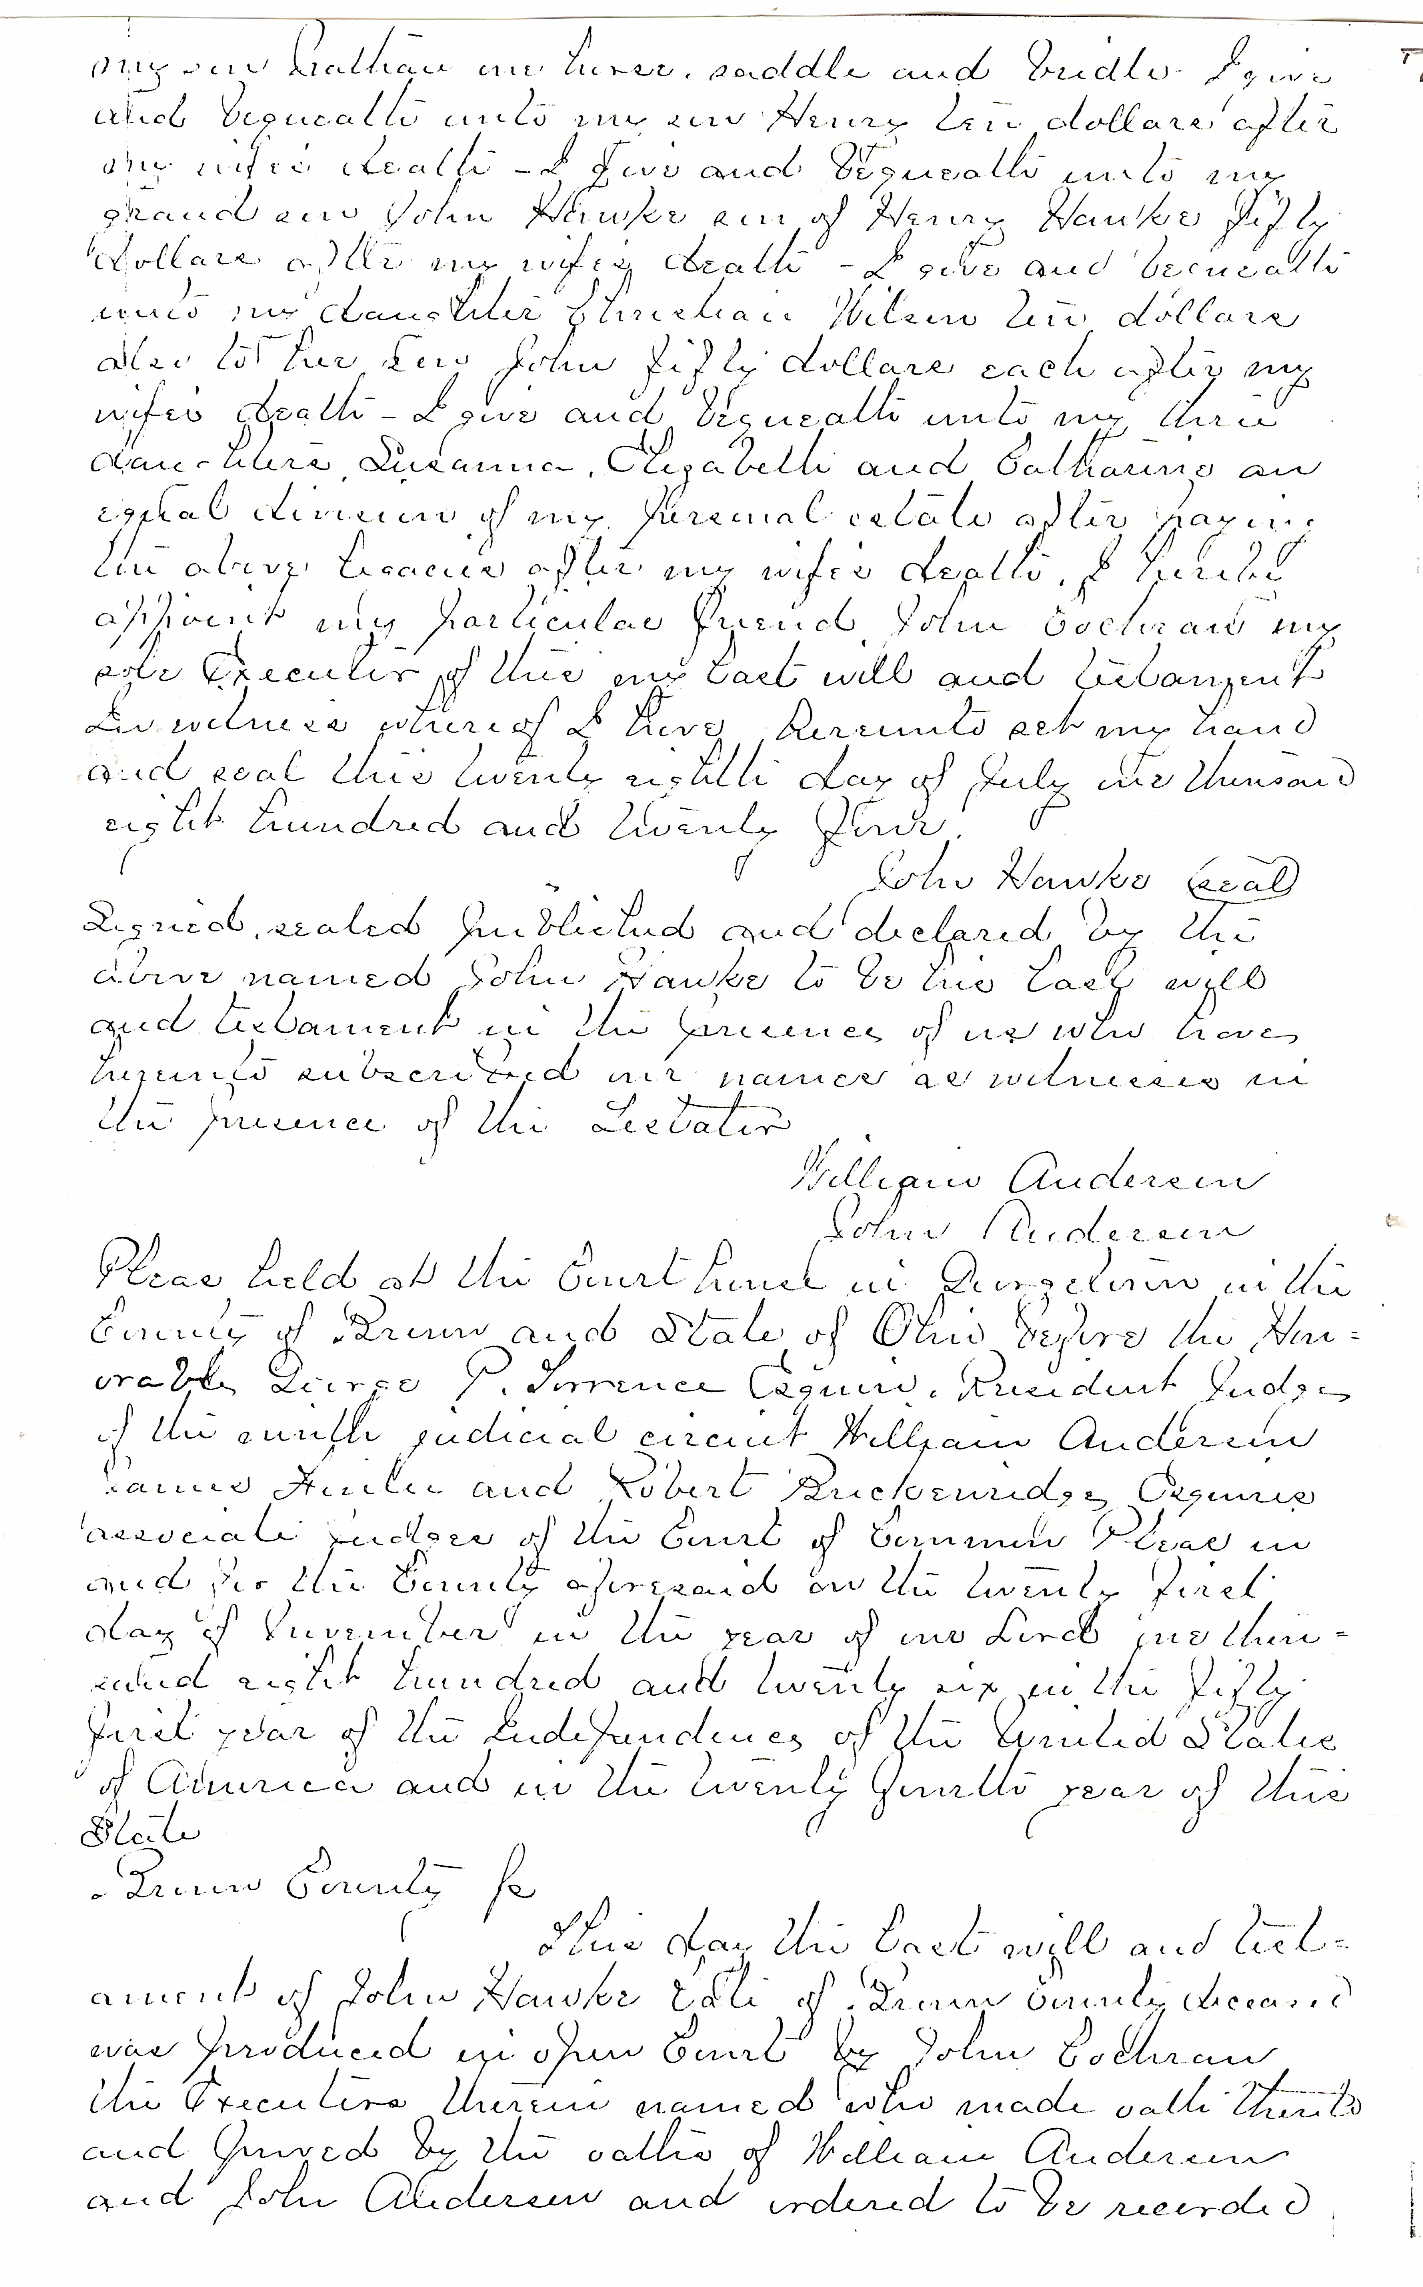 my son Nathan one horse, saddle and bridle. I give
and bequeath unto my son Henry ten dollars after
my wifes death - I give and bequeath unto my
grand son John Hawks son of Henry Hawks fifty
dollars after my wifes death - I give and bequeath
unto my daughter Christian Wilson ten dollars
also to her son John fifty dollars each after my
wifes death - I give and bequeath unto my three
daughters, Susanna, Elizabeth and Catharine an
equal division of my personal estate after paying
the above legacies after my wifes death, I hereby
appoint my particular friend John Cochran my
sole Executor of this my last will and testament
In witness whereof I have hereunto set my hand
and seal this twenty eighth day of July one thousand
eight hundred and twenty four.
John Hawks (seal)
Signed, sealed published and declared by the
above named John Hawks to be his last will
and testament in the presence of us who have
hereunto subscribed our names as witnesses in
the presence of the Testator
William Anderson
John Anderson
Pleas held at the Court house in Georgetown in the
County of Brown and State of Ohio before the Hon=
orable George P. Torrence Esquire, President Judge
of the ninth judicial circuit William Anderson
James Finley and Robert Breckenridge Esquires
associate judges of the Court of Common Pleas in
and for the County aforesaid on the twenty first
day of November in the year of our Lord one thou=
sand eight hundred and twenty six in the fifty
first year of the Independence of the United States
of America and in the twenty fourth year of this
State
Brown County Ss
This day the last will and test=
ament of John Hawks late of Brown County deceased
was produced in open Court by John Cochran
the Executor therein named who made oath thereto
and proved by the oaths of William Anderson
and John Anderson and ordered to be recorded